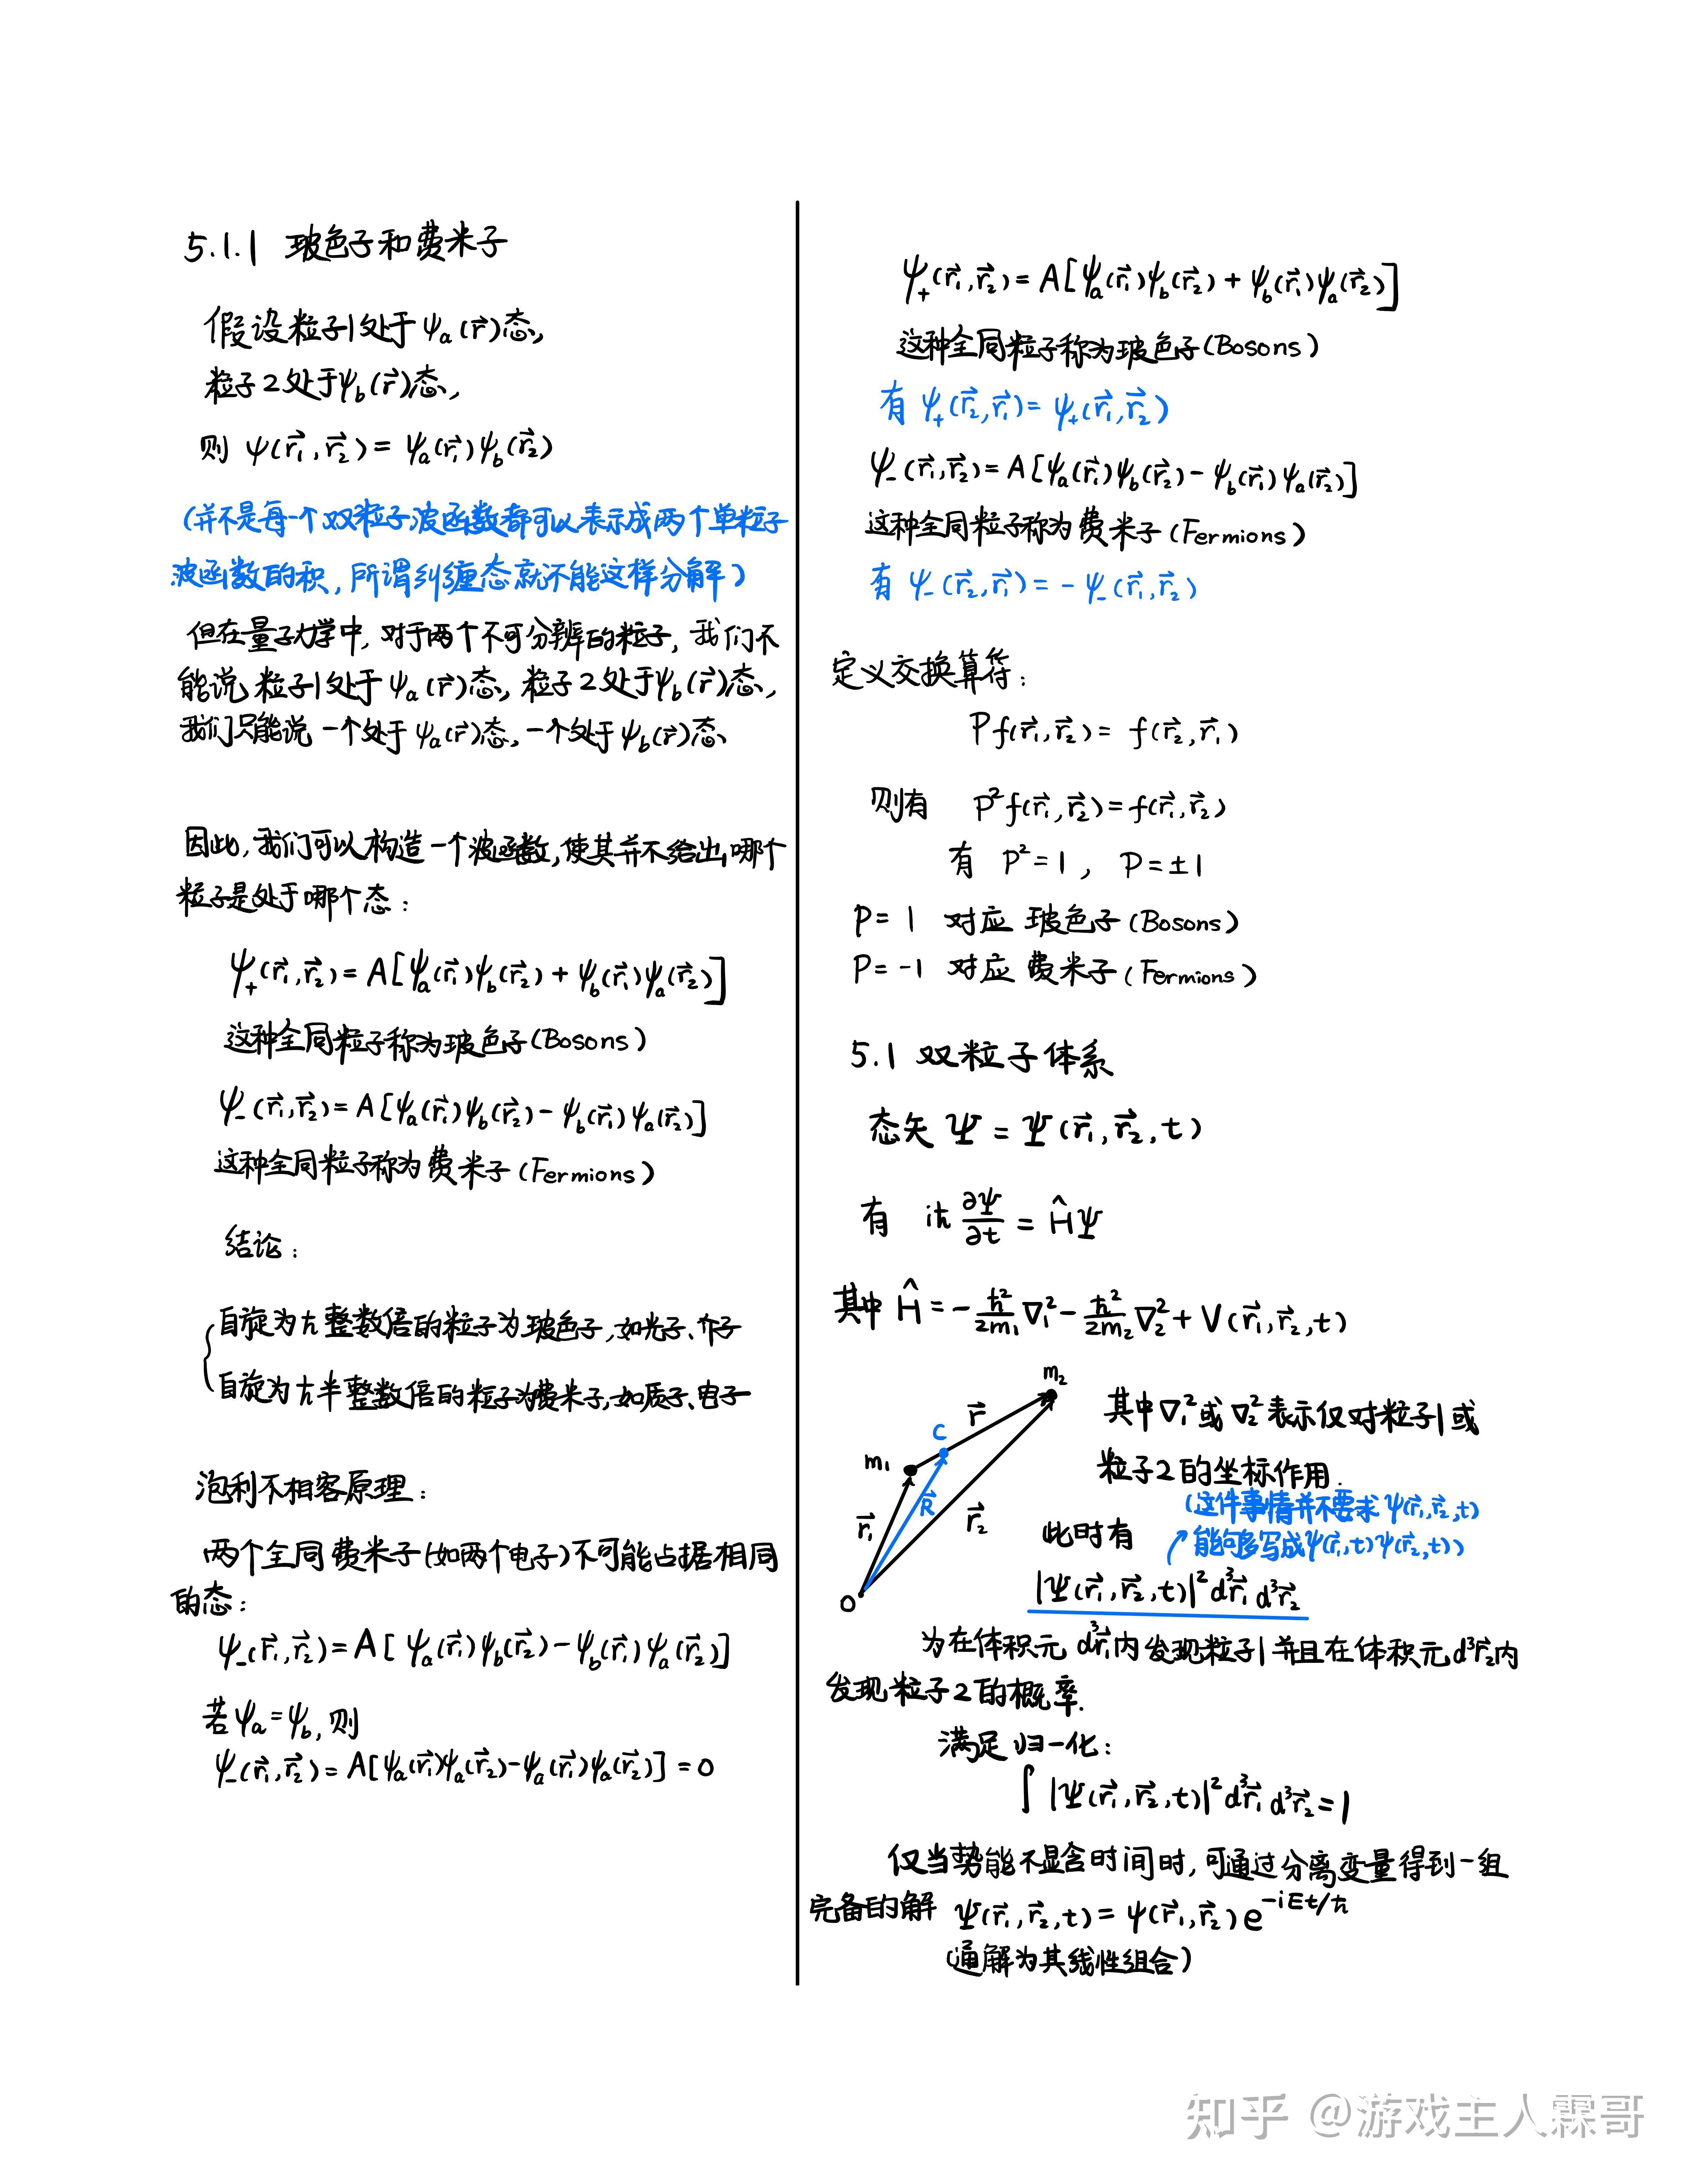 5.1.1 玻色子和费米子
假设粒子1处于 ψₐ(r⃗)态,
粒子2处于ψ_b(r⃗)态,
则 ψ(r⃗₁,r⃗₂) = ψₐ(r⃗₁)ψ_b(r⃗₂)
(并不是每一个双粒子波函数都可以表示成两个单粒子
波函数的积, 所谓纠缠态就不能这样分解)
但在量子力学中, 对于两个不可分辨的粒子, 我们不
能说 粒子1处于 ψₐ(r⃗)态, 粒子2处于ψ_b(r⃗)态,
我们只能说 一个处于 ψₐ(r⃗)态, 一个处于 ψ_b(r⃗)态
因此, 我们可以构造一个波函数, 使其并不给出哪个
粒子是处于哪个态:
ψ₊(r⃗₁,r⃗₂) = A[ψₐ(r⃗₁)ψ_b(r⃗₂) + ψ_b(r⃗₁)ψₐ(r⃗₂)]
这种全同粒子称为玻色子(Bosons)
ψ₋(r⃗₁,r⃗₂) = A[ψₐ(r⃗₁)ψ_b(r⃗₂) - ψ_b(r⃗₁)ψₐ(r⃗₂)]
这种全同粒子称为费米子(Fermions)
结论:
自旋为ℏ整数倍的粒子为玻色子, 如光子、介子
自旋为ℏ半整数倍的粒子为费米子, 如质子、电子
泡利不相容原理:
两个全同费米子(如两个电子)不可能占据相同
的态:
ψ₋(r⃗₁,r⃗₂) = A[ψₐ(r⃗₁)ψ_b(r⃗₂) - ψ_b(r⃗₁)ψₐ(r⃗₂)]
若ψₐ=ψ_b, 则
ψ₋(r⃗₁,r⃗₂) = A[ψₐ(r⃗₁)ψₐ(r⃗₂) - ψₐ(r⃗₁)ψₐ(r⃗₂)] = 0
ψ₊(r⃗₁,r⃗₂) = A[ψₐ(r⃗₁)ψ_b(r⃗₂) + ψ_b(r⃗₁)ψₐ(r⃗₂)]
这种全同粒子称为玻色子(Bosons)
有 ψ₊(r⃗₂,r⃗₁) = ψ₊(r⃗₁,r⃗₂)
ψ₋(r⃗₁,r⃗₂) = A[ψₐ(r⃗₁)ψ_b(r⃗₂) - ψ_b(r⃗₁)ψₐ(r⃗₂)]
这种全同粒子称为费米子(Fermions)
有 ψ₋(r⃗₂,r⃗₁) = -ψ₋(r⃗₁,r⃗₂)
定义交换算符:
P f(r⃗₁,r⃗₂) = f(r⃗₂,r⃗₁)
则有 P²f(r⃗₁,r⃗₂) = f(r⃗₁,r⃗₂)
有 P²=1, P=±1
P=1 对应 玻色子(Bosons)
P=-1 对应 费米子(Fermions)
5.1 双粒子体系
态矢 Ψ = Ψ(r⃗₁,r⃗₂,t)
有 iℏ ∂Ψ/∂t = ĤΨ
其中 Ĥ = -ℏ²/2m₁ ∇₁² - ℏ²/2m₂ ∇₂² + V(r⃗₁,r⃗₂,t)
m₂
r⃗
C
m₁
R⃗
r⃗₁
r⃗₂
O
其中∇₁²或∇₂²表示仅对粒子1或
粒子2的坐标作用.
(这件事情并不要求 ψ(r⃗₁,r⃗₂,t)
能够写成ψ(r⃗₁,t)ψ(r⃗₂,t))
此时有
|Ψ(r⃗₁,r⃗₂,t)|²d³r⃗₁d³r⃗₂
为在体积元 d³r⃗₁内发现粒子1并且在体积元d³r⃗₂内
发现粒子2的概率.
满足归一化:
∫|Ψ(r⃗₁,r⃗₂,t)|²d³r⃗₁d³r⃗₂=1
仅当势能不显含时间时, 可通过分离变量得到一组
完备的解 Ψ(r⃗₁,r⃗₂,t) = ψ(r⃗₁,r⃗₂)e^(-iEt/ℏ)
(通解为其线性组合)
知乎 @游戏主人霖哥